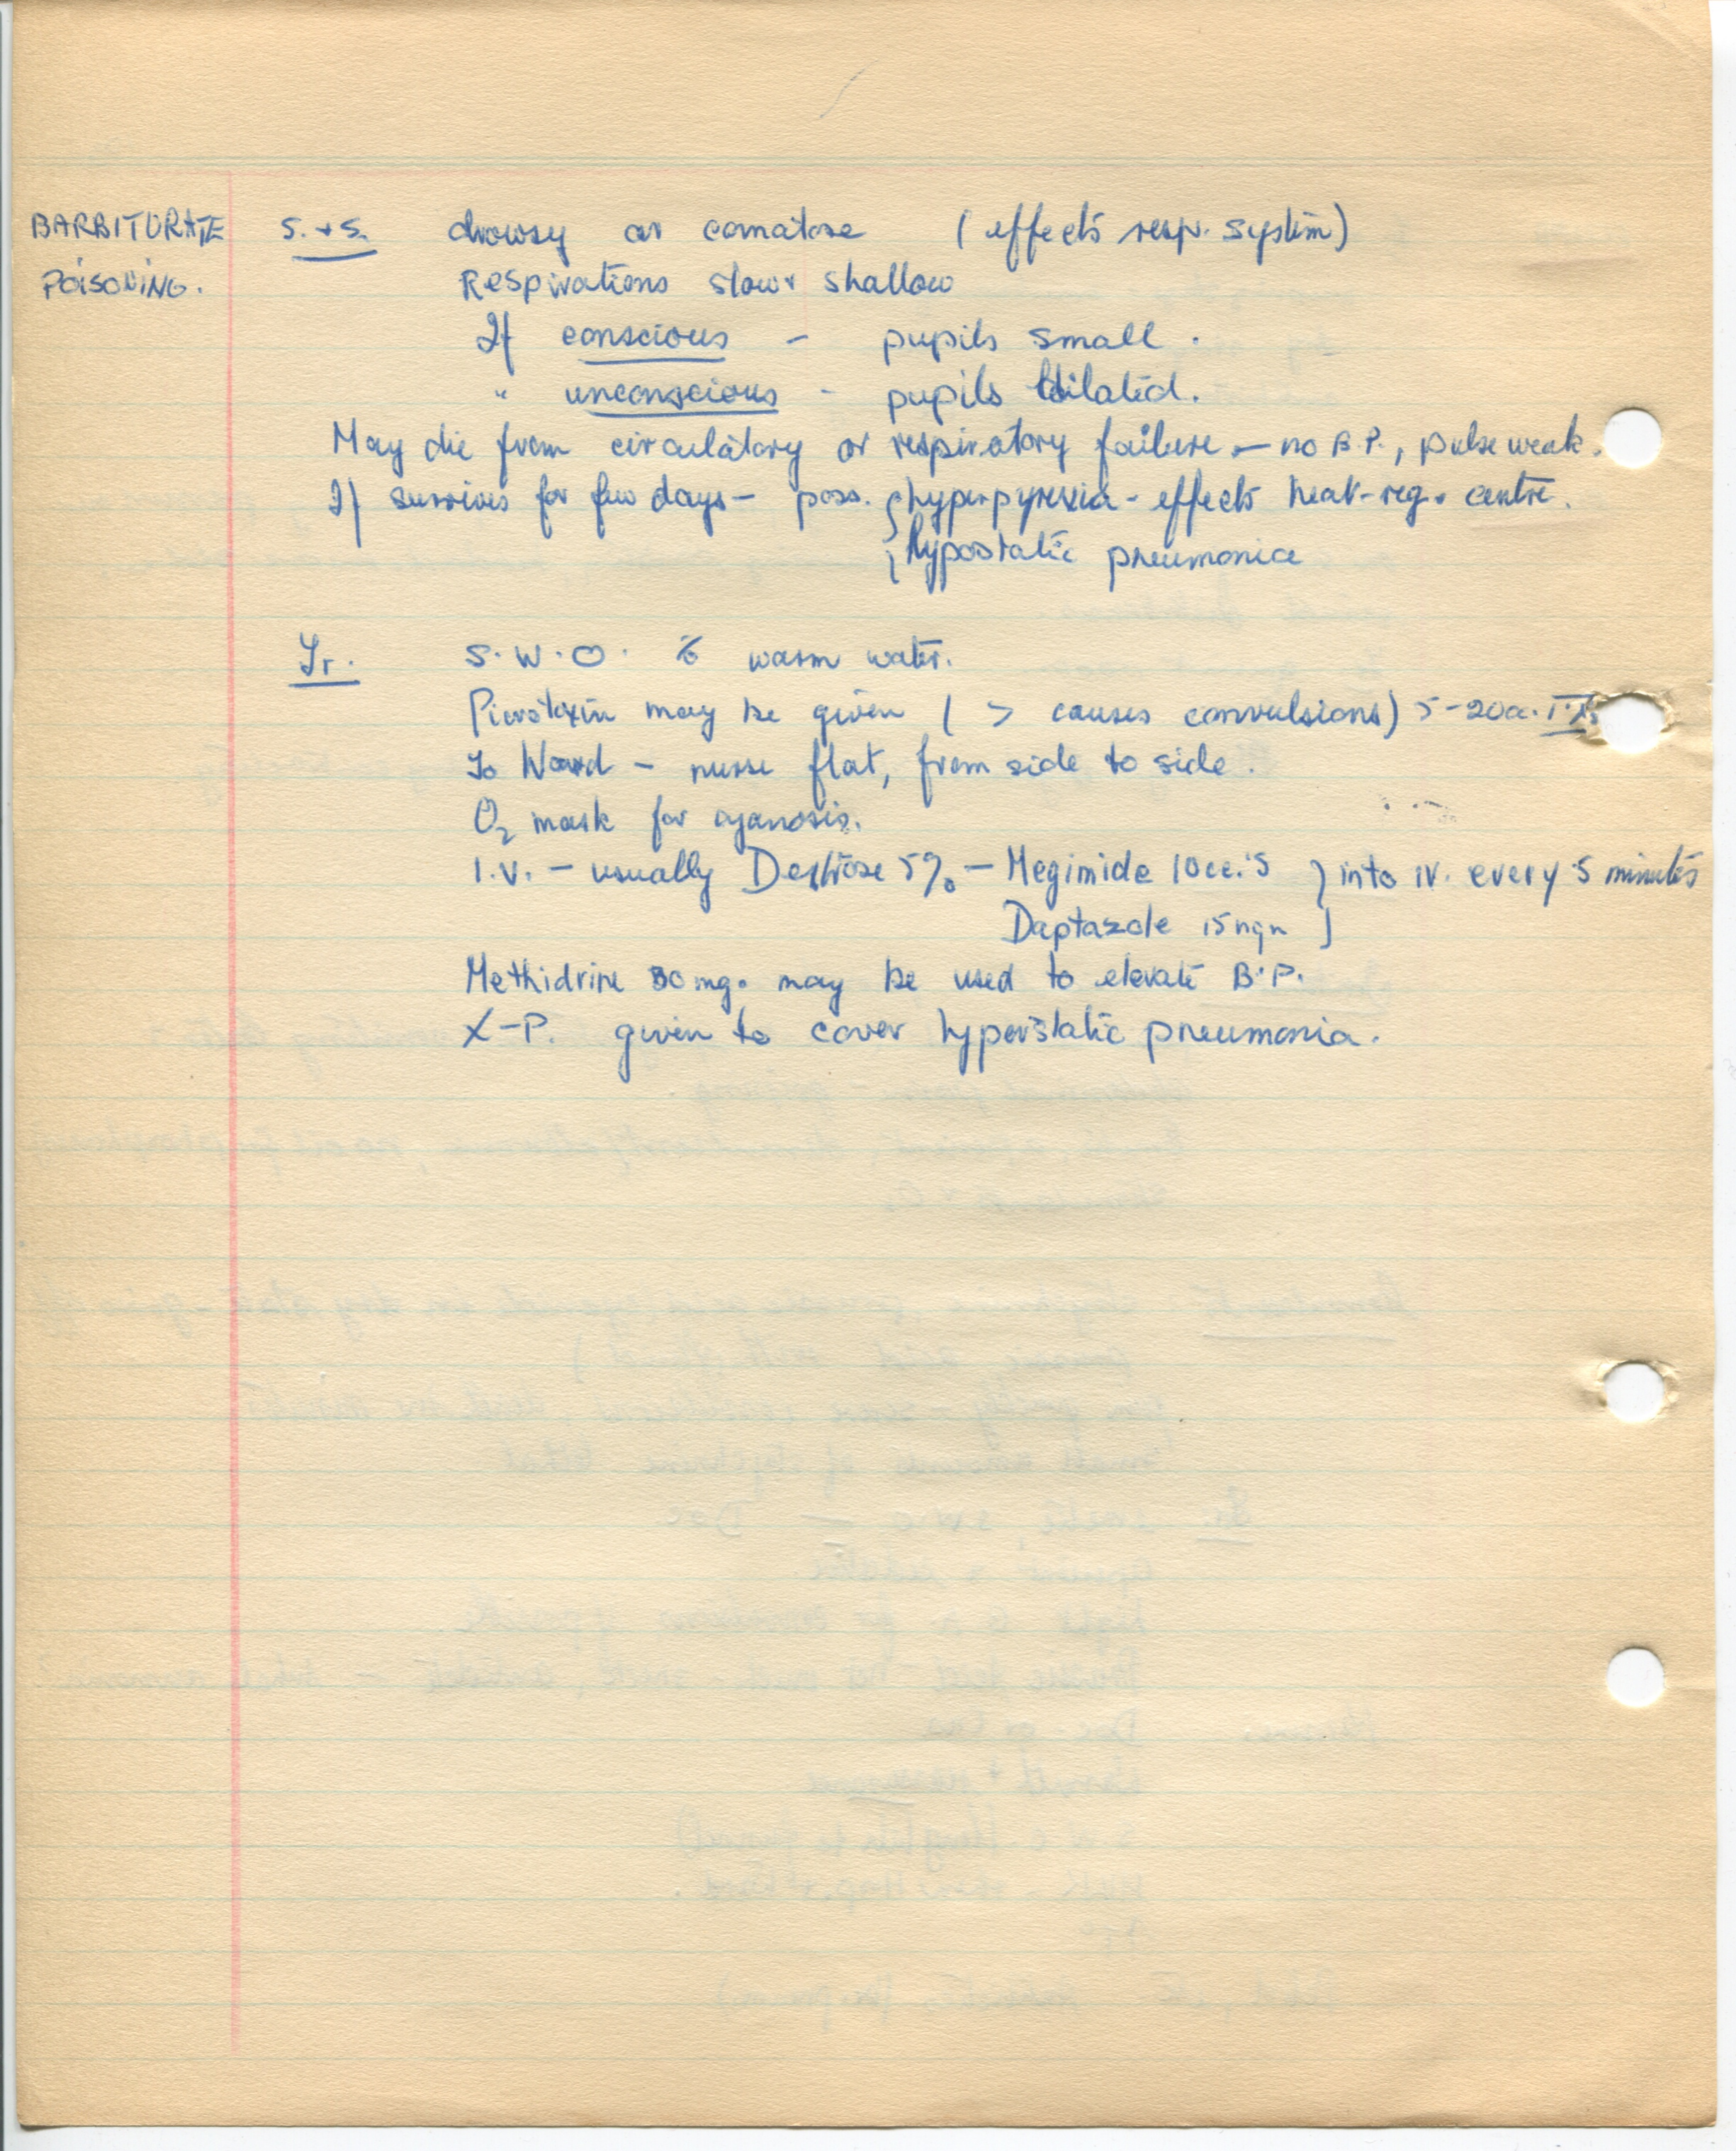 BARBITURATE S. + S. drowsy or comatose (effects resp. system)
POISONING. Respirations slow + shallow
If conscious - pupils small.
" unconscious - pupils dilated.
May die from circulatory or respiratory failure - no B.P., pulse weak.
If survives for few days - poss. { hyperpyrexia - effects heat-reg. centre.
{ hypostatic pneumonia
Tr. S.W.O. c̄ warm water.
Picrotoxin may be given ( > causes convulsions) 5-20cc.
To Ward - nurse flat, from side to side.
O2 mask for cyanosis.
I.V. - usually Dextrose 5% - Megimide 10cc.'s } into iv. every 5 minutes
Daptazole 15 }
Methidrine 30 mg. may be used to elevate B.P.
X-P. given to cover hyperstatic pneumonia.